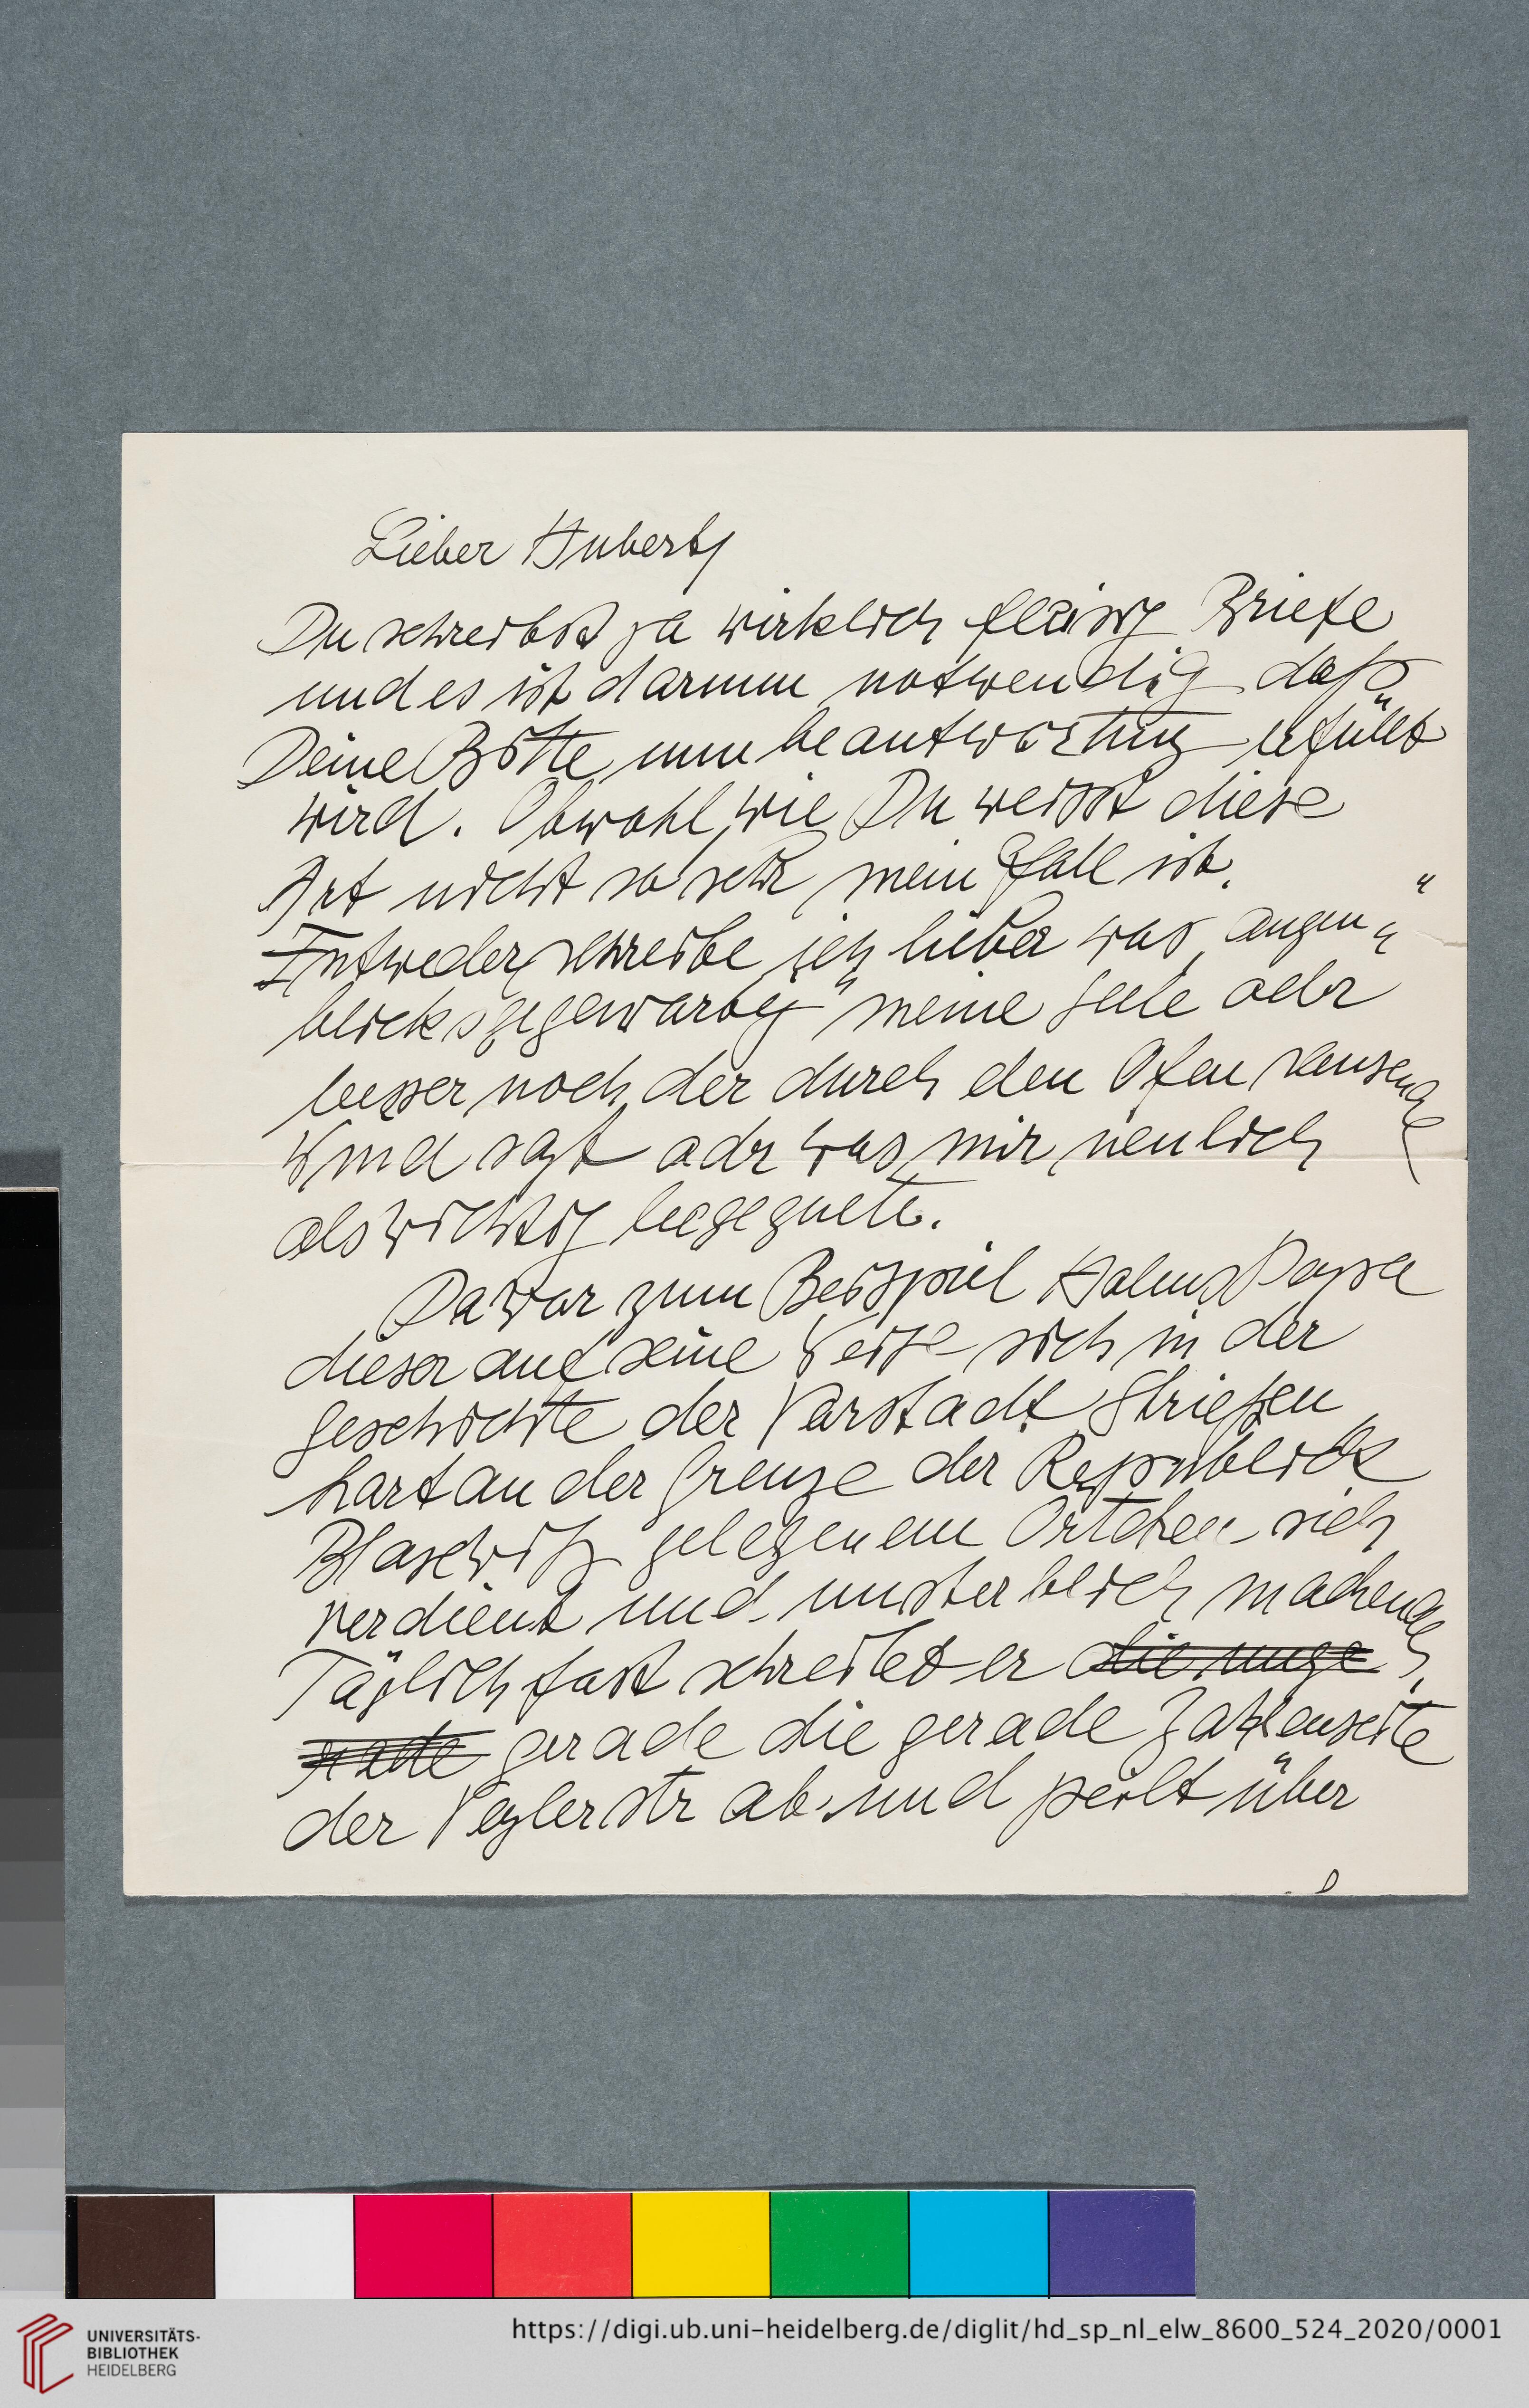 Lieber Hubert,
Du schreibst ja wirklich fleissig Briefe
und es ist darum notwendig daß
Deine Bitte um beantwortung erfüllt
wird. Obwohl, wie Du weisst diese
Art nicht so sehr mein Fall ist.
Entweder schreibe ich lieber was augen-
blicksgegenwärtig meine Seele oder
besser noch der durch den Ofen sausende
Wind sagt oder was mir neulich
als wichtig begegnete.
Da war zum Beispiel Papa
dieser auf seine Weise sich in der
Geschichte der Vorstadt Striesen
hart an der Grenze der Republick
Blasewitz gelegenem Örtchen sich
verdient und unsterblich machend
Täglich fast schreitet er
gerade die gerade Zahlenseite
der Voglerstr ab und peilt über
UNIVERSITÄTS-
BIBLIOTHEK
HEIDELBERG
https://digi.ub.uni-heidelberg.de/diglit/hd_sp_nl_elw_8600_524_2020/0001